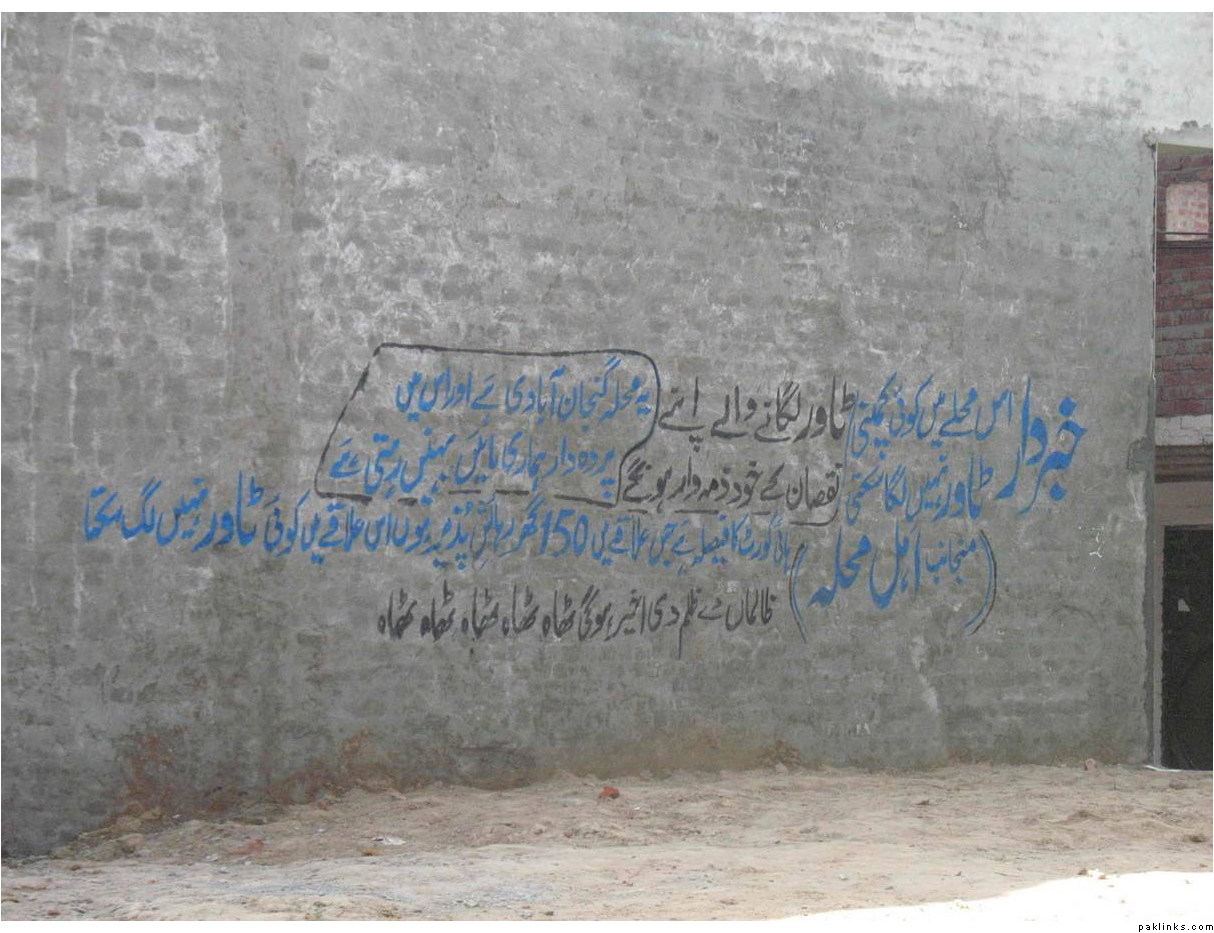 خبردار
اس محلے میں کوئی کمپنی
ٹاور نہیں لگا سکتی
ٹاور لگانے والے اپنے
نقصان کے خود ذمہ دار ہونگے
یہ محلہ گنجان آبادی ہے اور اس میں
پردہ دار ہماری مائیں بہنیں رہتی ہے
(منجانب اہل محلہ)
ہائی کورٹ کا فیصلہ ہے جس علاقے میں 150 گھر رہائش پذیر ہوں اس علاقے میں کوئی ٹاور نہیں لگ سکتا
ظالماں دے ظلم دی اخیر ہوگی ٹھاہ ٹھاہ ٹھاہ ٹھاہ ٹھاہ
paklinks.com